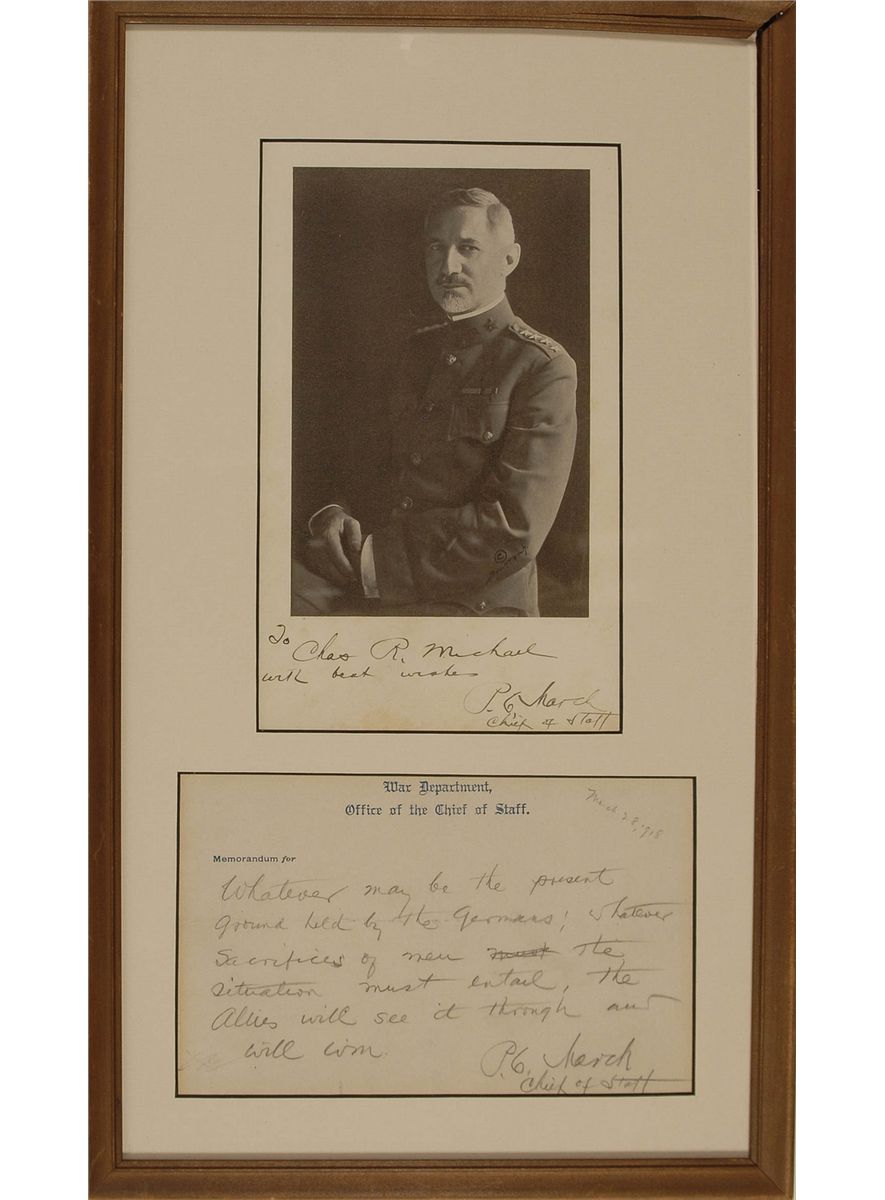 ©
To
Chas R. Michael
with best wishes
P. C. March
Chief of Staff
War Department,
Office of the Chief of Staff.
March 28, 1918
Memorandum for
Whatever may be the present
ground held by the Germans; whatever
sacrifices of men must the
situation must entail, the
Allies will see it through and
will win.
P. C. March
Chief of Staff